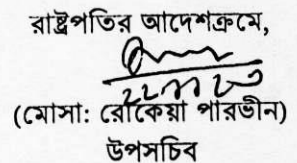 রাষ্ট্রপতির আদেশক্রমে,
(মোসা: রোকেয়া পারভীন)
উপসচিব